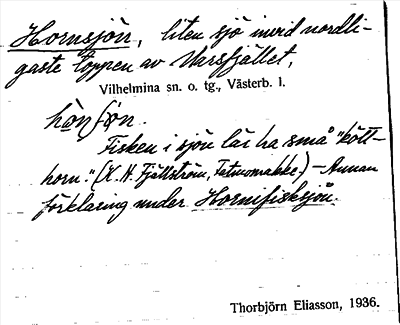 Hornsjön, liten sjö invid nordli-
gaste toppen av Marsfjället,
Vilhelmina sn. o. tg., Västerb. l.
Fisken i sjön lär ha små "kött-
horn." (K. H. Fjällström, Fatmomakke) – Annan
förklaring under Hornifisksjön.
Thorbjörn Eliasson, 1936.